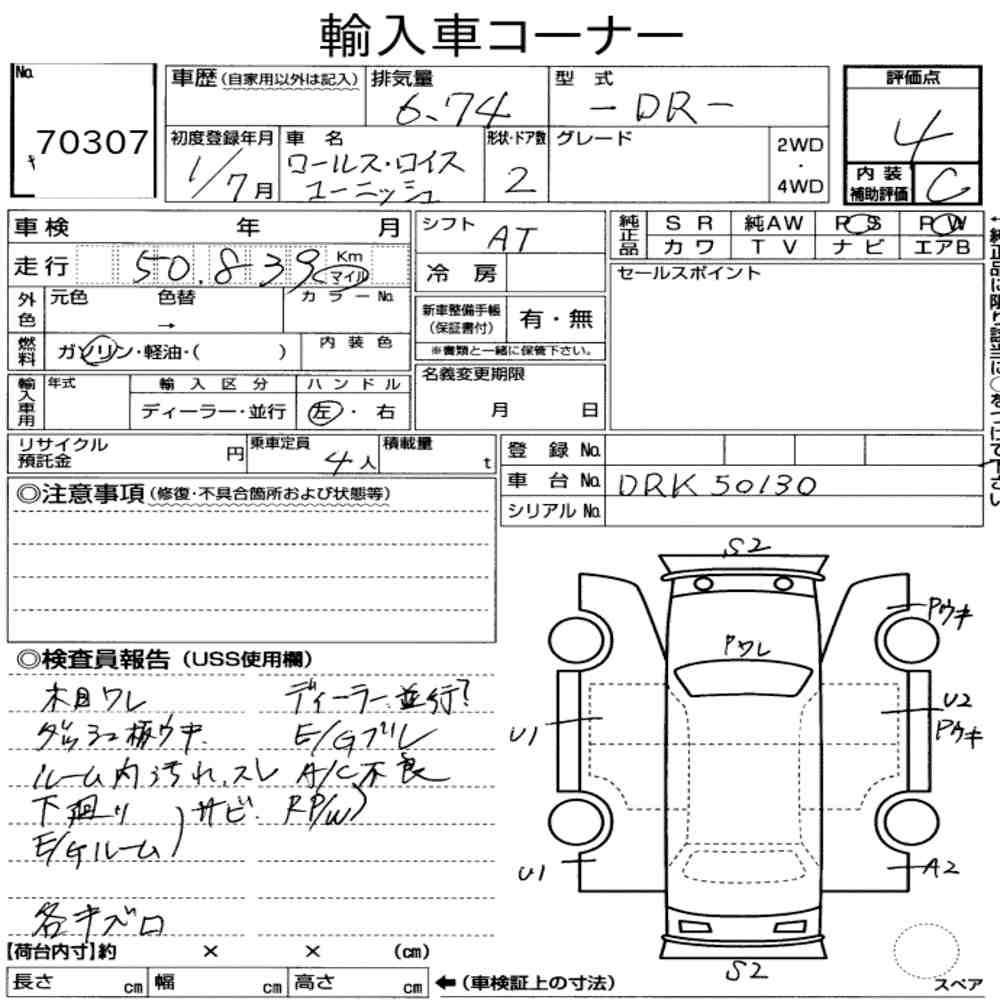 輸入車コーナー
No. 70307
車歴 (自家用以外は記入)
排気量 6.74
型 式 -DR-
評価点 4
初度登録年月 1/7月
車 名 ロールス・ロイス
コーニッシュ
形状・ドア数 2
グレード
2WD
・
4WD
内 装
補助評価 C
車検 年 月
シフト AT
純正品
S R 純AW P S P W
カ ワ T V ナ ビ エアB
走行 50,839 Km
マイル
冷 房
セールスポイント
外色 元色 色替 カ ラ ー No.
→
新車整備手帳
(保証書付) 有・無
※書類と一緒に保管下さい。
燃料 ガソリン・軽油・( )
内 装 色
名義変更期限
月 日
輸入車用 年式 輸 入 区 分 ハ ン ド ル
ディーラー・並行 左・右
←純正品に限り該当に○をつけて下さい
リサイクル
預託金 円
乗車定員 4人
積載量 t
登 録 No.
車 台 No. DRK50130
シリアル No.
◎注意事項 (修復・不具合箇所および状態等)
◎検査員報告 (USS使用欄)
木目ワレ ディーラー、並行?
ダッシュ板ウキ E/Gブレ
ルーム内汚れ、スレ A/C不良
下廻り サビ RP/W
E/Gルーム
各キズ口
S2
Pウキ
Pワレ
U1
U2
Pウキ
U1
A2
S2
スペア
【荷台内寸】約 × × (cm)
長さ cm 幅 cm 高さ cm ←(車検証上の寸法)